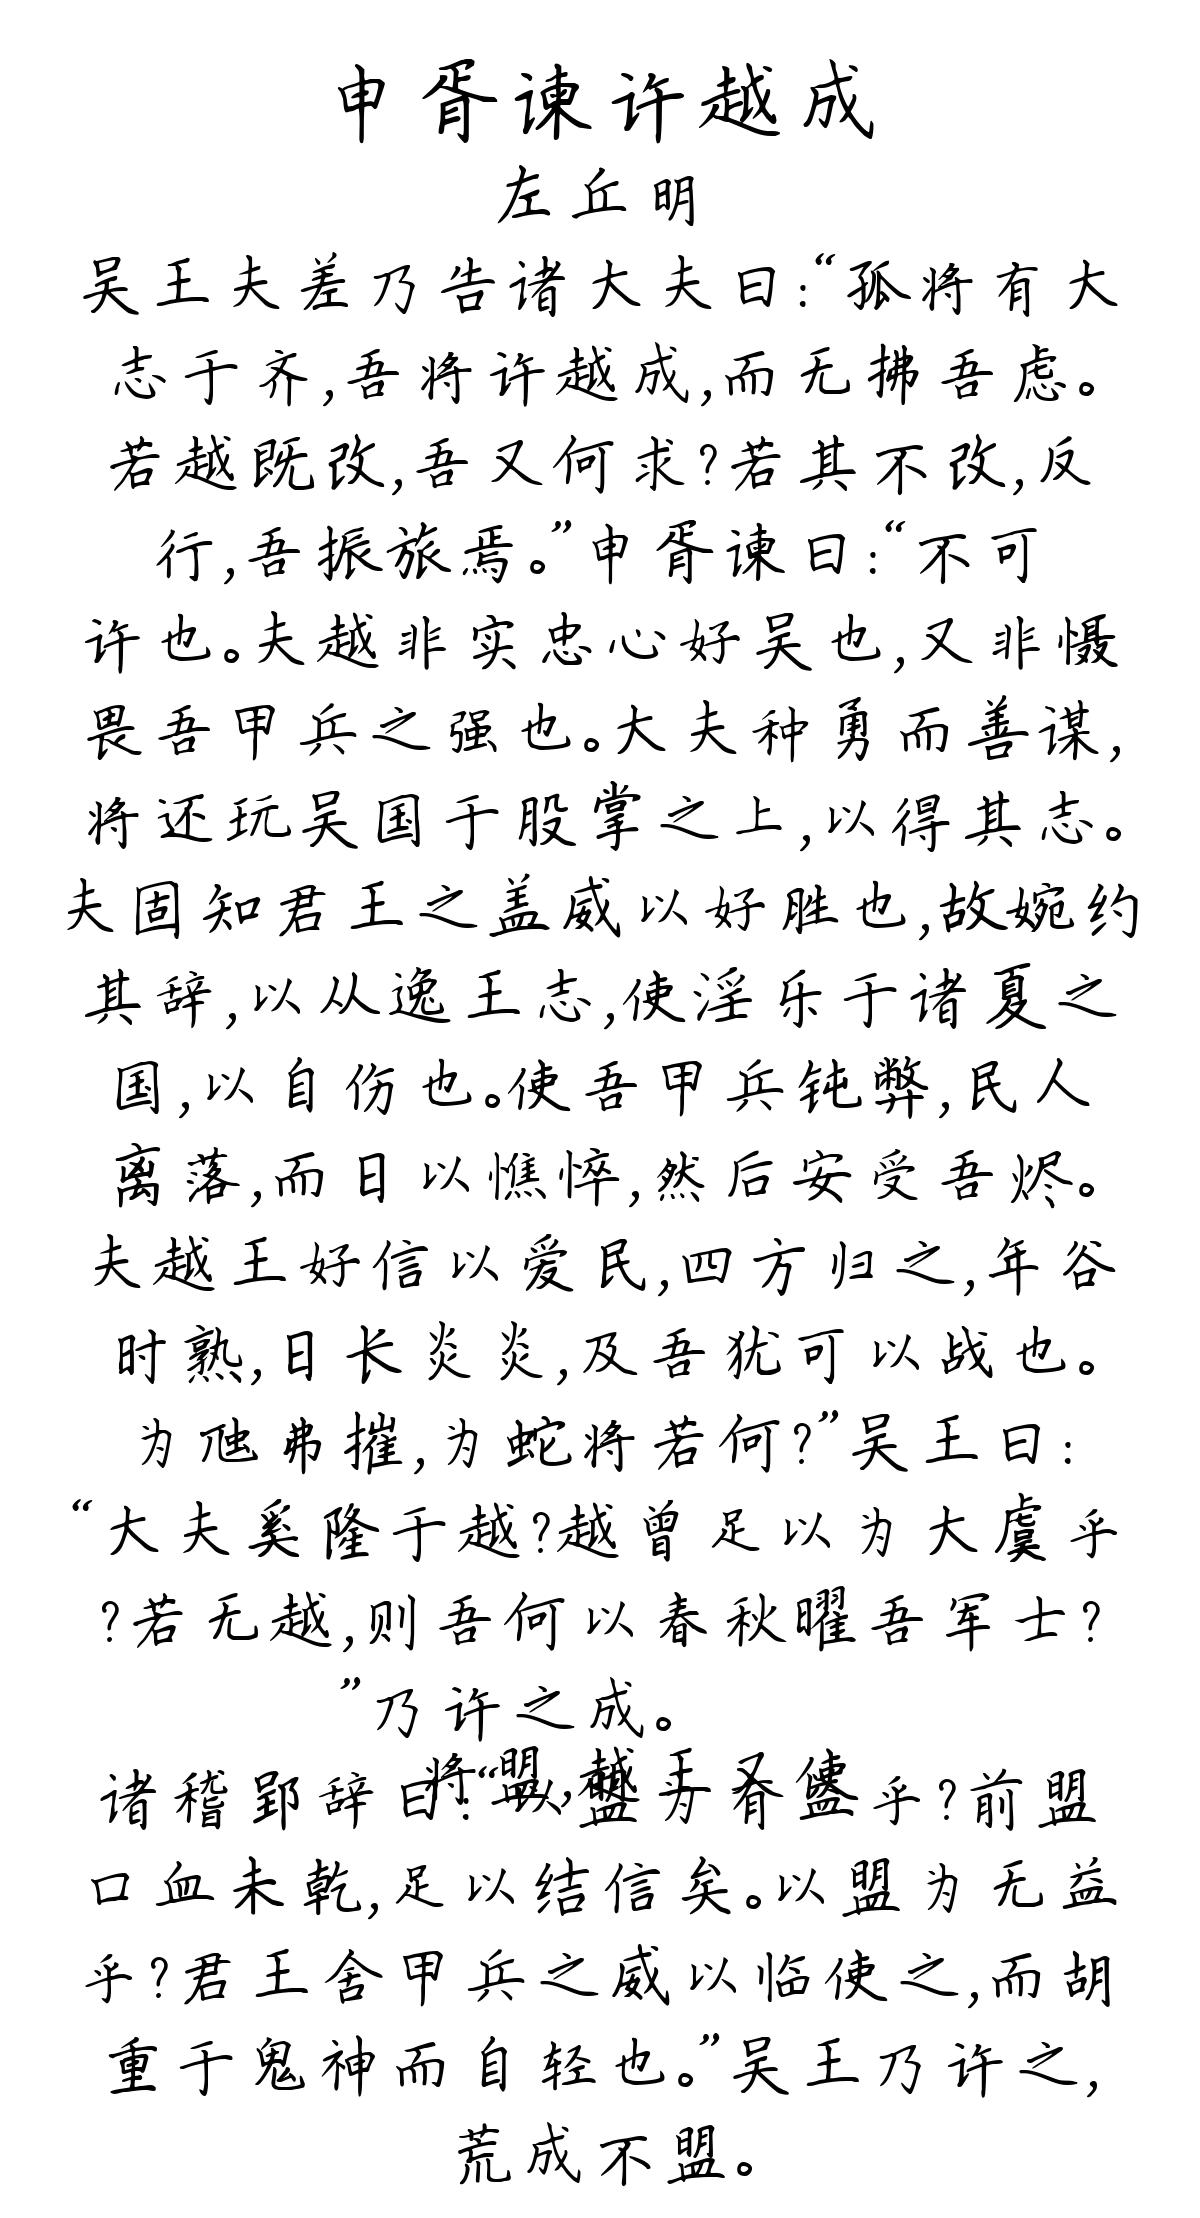 申胥谏许越成
左丘明
吴王夫差乃告诸大夫曰:“孤将有大
志于齐,吾将许越成,而无拂吾虑。
若越既改,吾又何求?若其不改,反
行,吾振旅焉。”申胥谏曰:“不可
许也。夫越非实忠心好吴也,又非慑
畏吾甲兵之强也。大夫种勇而善谋,
将还玩吴国于股掌之上,以得其志。
夫固知君王之盖威以好胜也,故婉约
其辞,以从逸王志,使淫乐于诸夏之
国,以自伤也。使吾甲兵钝弊,民人
离落,而日以憔悴,然后安受吾烬。
夫越王好信以爱民,四方归之,年谷
时熟,日长炎炎,及吾犹可以战也。
为虺弗摧,为蛇将若何?”吴王曰:
“大夫奚隆于越?越曾足以为大虞乎
?若无越,则吾何以春秋曜吾军士?
”乃许之成。
将盟,越王又使
诸稽郢辞曰:“以盟为有益乎?前盟
口血未乾,足以结信矣。以盟为无益
乎?君王舍甲兵之威以临使之,而胡
重于鬼神而自轻也。”吴王乃许之,
荒成不盟。